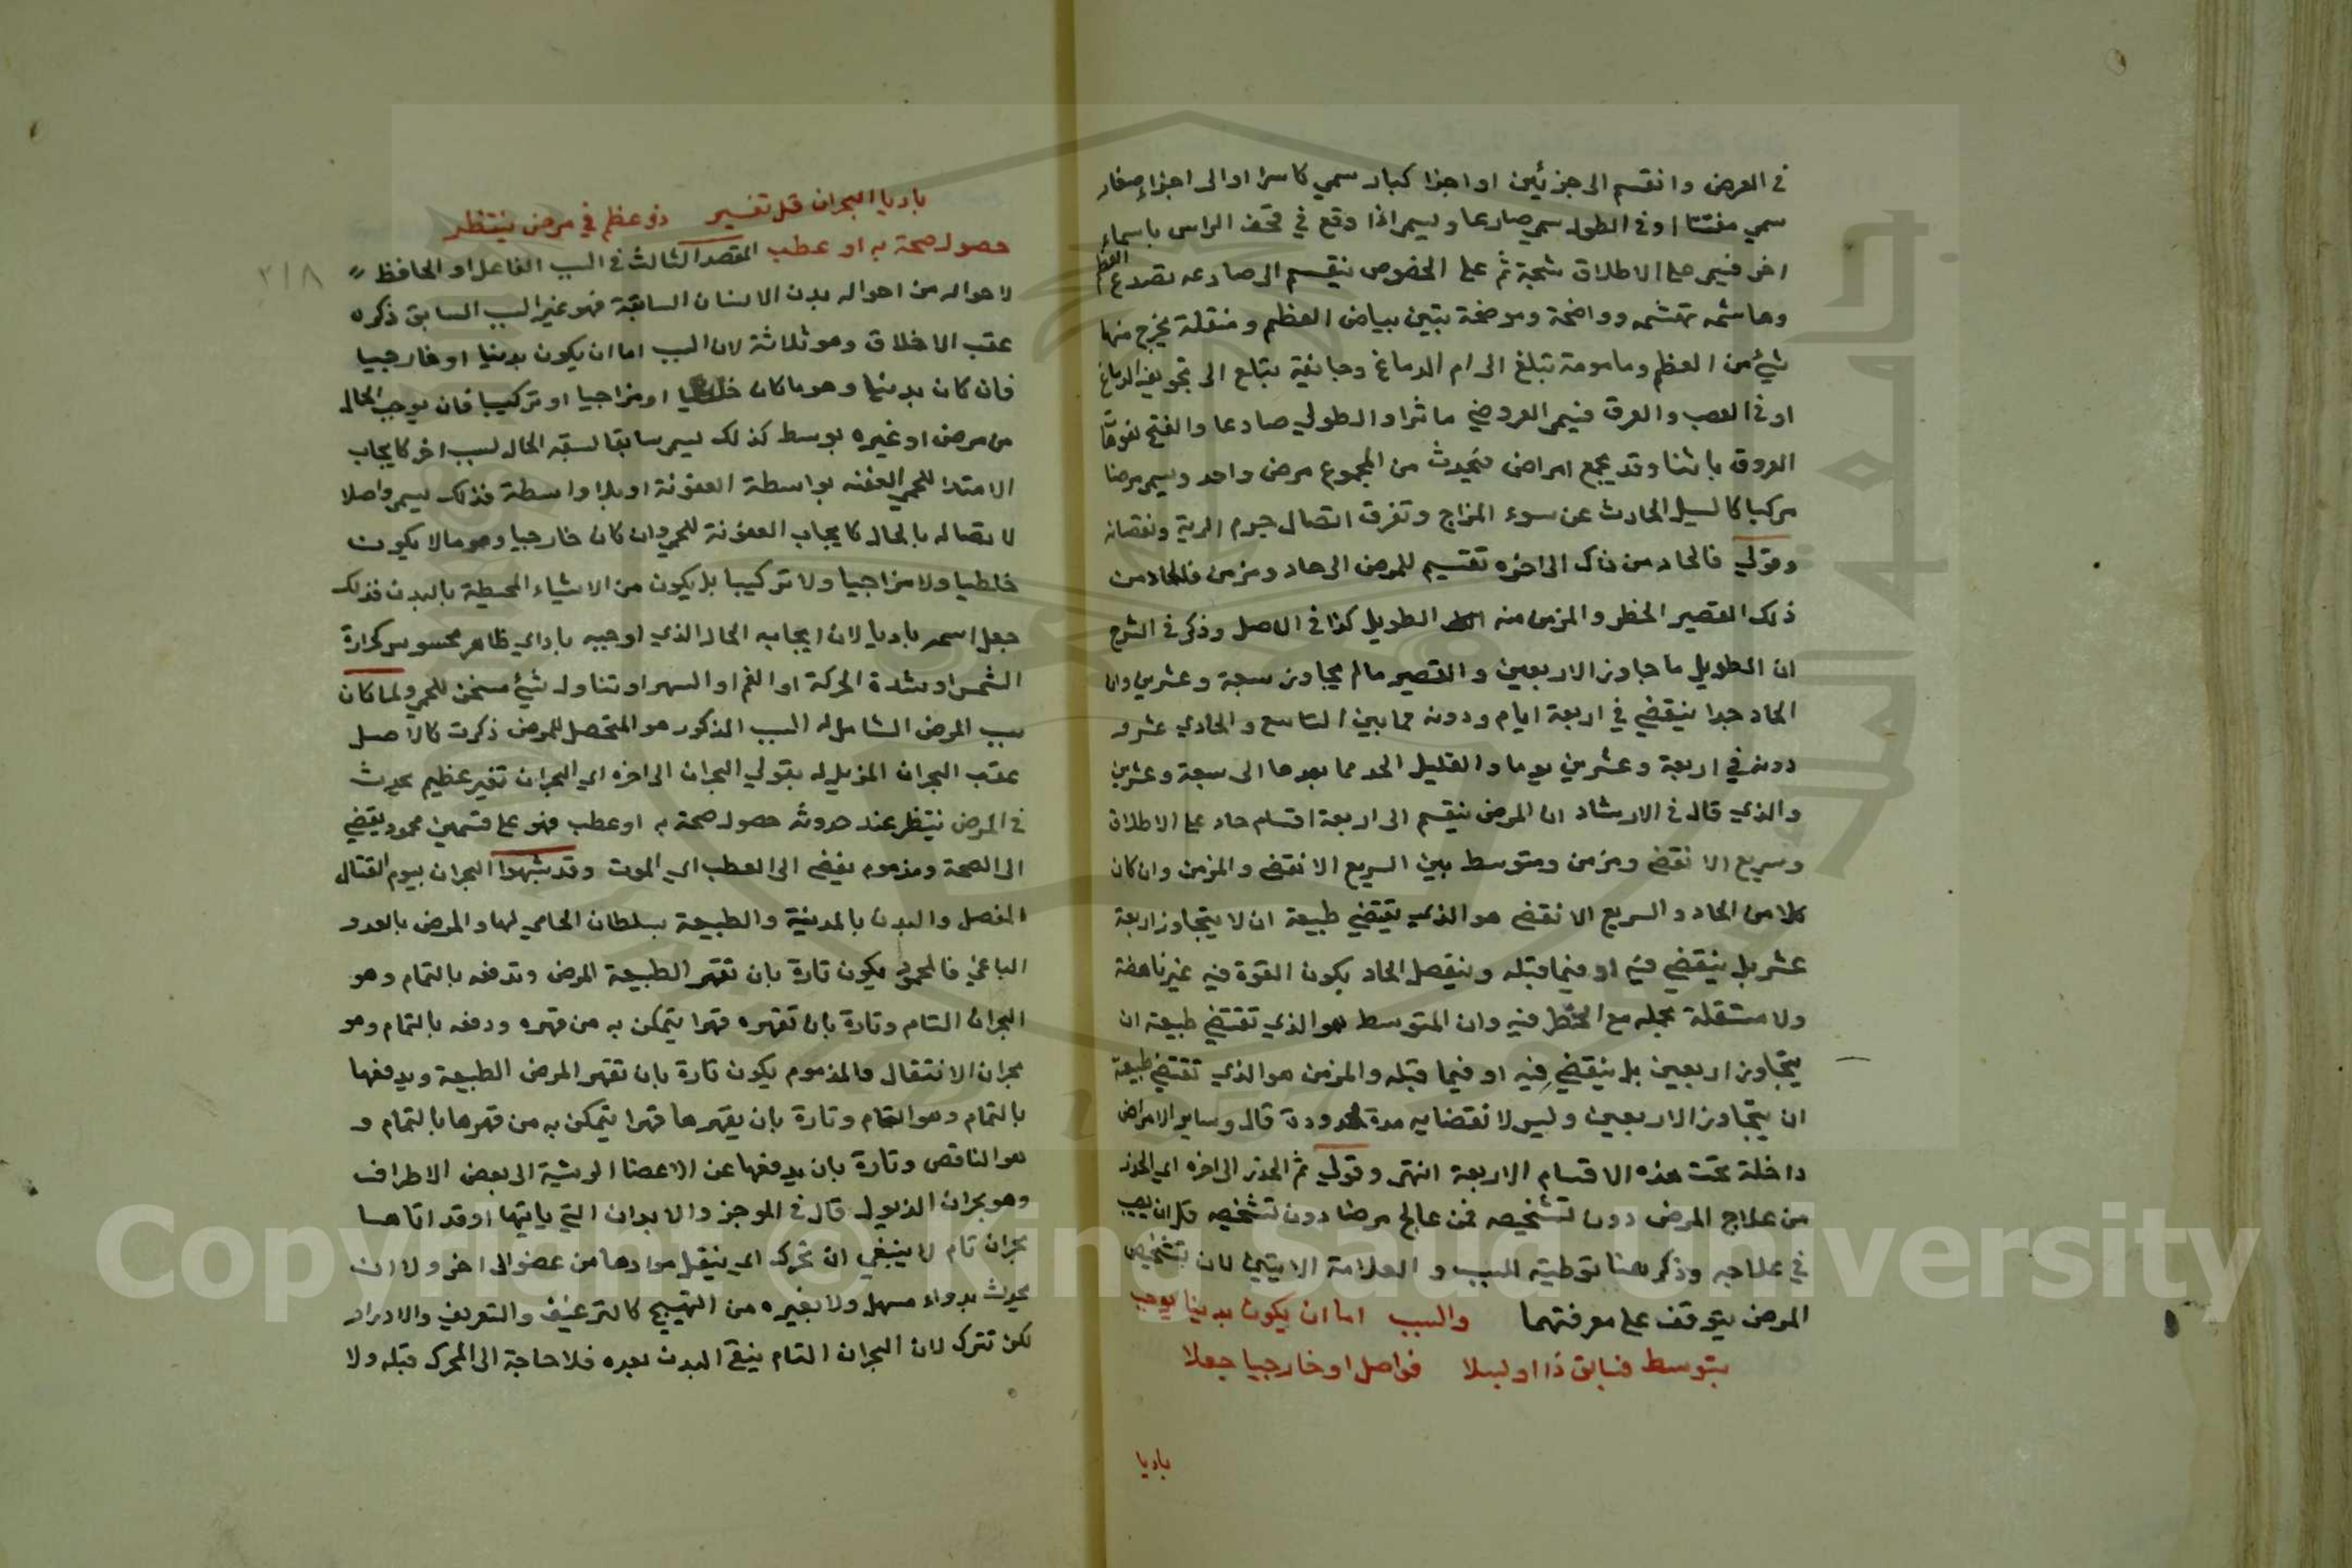 في العرض وانقسم الى جزئين او اجزا كبار سمي كاسرا والى اجزاء صغار
سمي مفتتا او في الطول سمي صادعا ويسمى اذا وقع في قحف الراس باسماء
اخر فيسمى على الاطلاق شجة ثم على الخصوص ينقسم الى صادعه تصدع العظم
وهاشمه تهشمه وواضحة وموضحة تبين بياض العظم ومنقلة يخرج منها
شئ من العظم ومامومة تبلغ الى ام الدماغ وجائفة تبلغ الى تجويف الدماغ
او في العصب والعرق فيسمى العرضي باترا والطولي صادعا والفتح لفوهات
العروق باثقا وقد يجمع امراض فيحدث من المجموع مرض واحد ويسمى مرضا
مركبا كالسيل الحادث عن سوء المزاج وتفرق اتصال جرم الرية ونقصانه
وقولي فالحاد من ذاك الى اخره تقسيم للمرض الى حاد ومزمن فالحاد من
ذلك القصير الخطر والمزمن منه الطويل كذا في الاصل وذكر في الشرح
ان الطويل ما جاوز الاربعين والقصير مالم يجاوز سبعة وعشرين واما
الحاد جدا ينقضي في اربعة ايام ودونه مما بين التاسع والحادي عشر و
دونه في اربعة وعشرين يوما والقليل الحد مما بعدها الى سبعة وعشرين
والذي قال في الارشاد ان المرض ينقسم الى اربعة اقسام حاد على الاطلاق
وسريع الانقضى ومزمن ومتوسط بين السريع الانقضى والمزمن وان كان
كلا من الحاد والسريع الانقضى هو الذي تقتضي طبيعة ان لا يتجاوز اربعة
عشر بل ينقضي فيه او فيما قبله وينفصل الحاد بكون القوة فيه غير ناهضة
ولا مستقلة بحمله مع الخطر فيه وان المتوسط هو الذي تقتضي طبيعة ان
يتجاوز اربعين بل ينقضي فيه او فيما قبله والمزمن هو الذي تقتضي طبيعة
ان يتجاوز الاربعين وليس لانقضايه مدة محدودة قال وساير الامراض
داخلة تحت هذه الاقسام الاربعة انتهى وقولي ثم الحذر الى اخره اي الحذر
من علاج المرض دون تشخيصه فمن عالج مرضا دون تشخيصه قل ان يصيب
في علاجه وذكر هنا توطيه للسبب والعلامة الاتيين لان تشخيص
المرض يتوقف على معرفتهما والسبب اما ان يكون بدنيا يوجب
بتوسط فسابق ذا او لا فواصل او خارجيا جعلا
باديا
باديا البحران قل تفسير ذو عظم في مرض ينتظر
حصول صحة به او عطب المقصد الثالث في السبب الفاعل او الحافظ
لاحواله من احوال بدن الانسان السابقة فهو غير السبب السابق ذكره
عقب الاخلاق وهو ثلاثة لان السبب اما ان يكون بدنيا او خارجيا
فان كان بدنيا وهو ما كان خلطيا او مزاجيا او تركيبيا فان يوجب الحال
من مرض او غيره بوسط كذلك يسمى سابقا لسبقه الحال لسبب اخر كايجاب
الامتلا للحمى العفنه بواسطة العفونة او بلا واسطة فذلك يسمى واصلا
لاتصاله بالحال كايجاب العفونة للحمى وان كان خارجيا وهو مالا يكون
خلطيا ولا مزاجيا ولا تركيبيا بل يكون من الاشياء المحيطة بالبدن فذلك
جعل اسمه باديا لان ايجابيه الحال الذي اوجبه باد اي ظاهر محسوس كحرارة
الشمس او شدة الحركة او الغم او السهر او تناول شئ مسخن للحمى ولما كان
سبب المرض الشامل له السبب المذكور هو المتحصل للمرض ذكرت كالاصل
عقب البحران المزيل له بقولي البحران الى اخره اي البحران تغير عظيم يحدث
في المرض ينتظر عند حدوثه حصول صحة به او عطب فهو على قسمين محمود يفضي
الى الصحة ومذموم يفضي الى العطب اي الموت وقد شبهوا البحران بيوم القتال
الفصل والبدن بالمدينة والطبيعة بسلطان الحامي لها والمرض بالعدو
الباغي فالمحمود يكون تارة بان تقهر الطبيعة المرض وتدفعه بالتمام وهو
البحران التام وتارة بان تقهره قهرا يتمكن به من قهره ودفعه بالتمام وهو
بحران الانتقال والمذموم يكون تارة بان تقهر المرض الطبيعة ويدفعها
بالتمام وهو التمام وتارة بان يقهرها قهرا يتمكن به من قهرها بالتمام و
هو الناقص وتارة بان يدفعها عن الاعضا الريسة الى بعض الاطراف
وهو بحران الذبول قال في الموجز والابدان التي ياتيها او قد اتاها
بحران تام لا ينبغي ان تحرك اي ينقل موادها من عضو الى اخر ولا ان
يحدث بدواء مسهل ولا بغيره من التهييج كالترعيف والتعريق والادرار
لكن تترك لان البحران التام ينقي البدن بعده فلا حاجة الى المحرك قبله ولا
Copyright © King Saud University